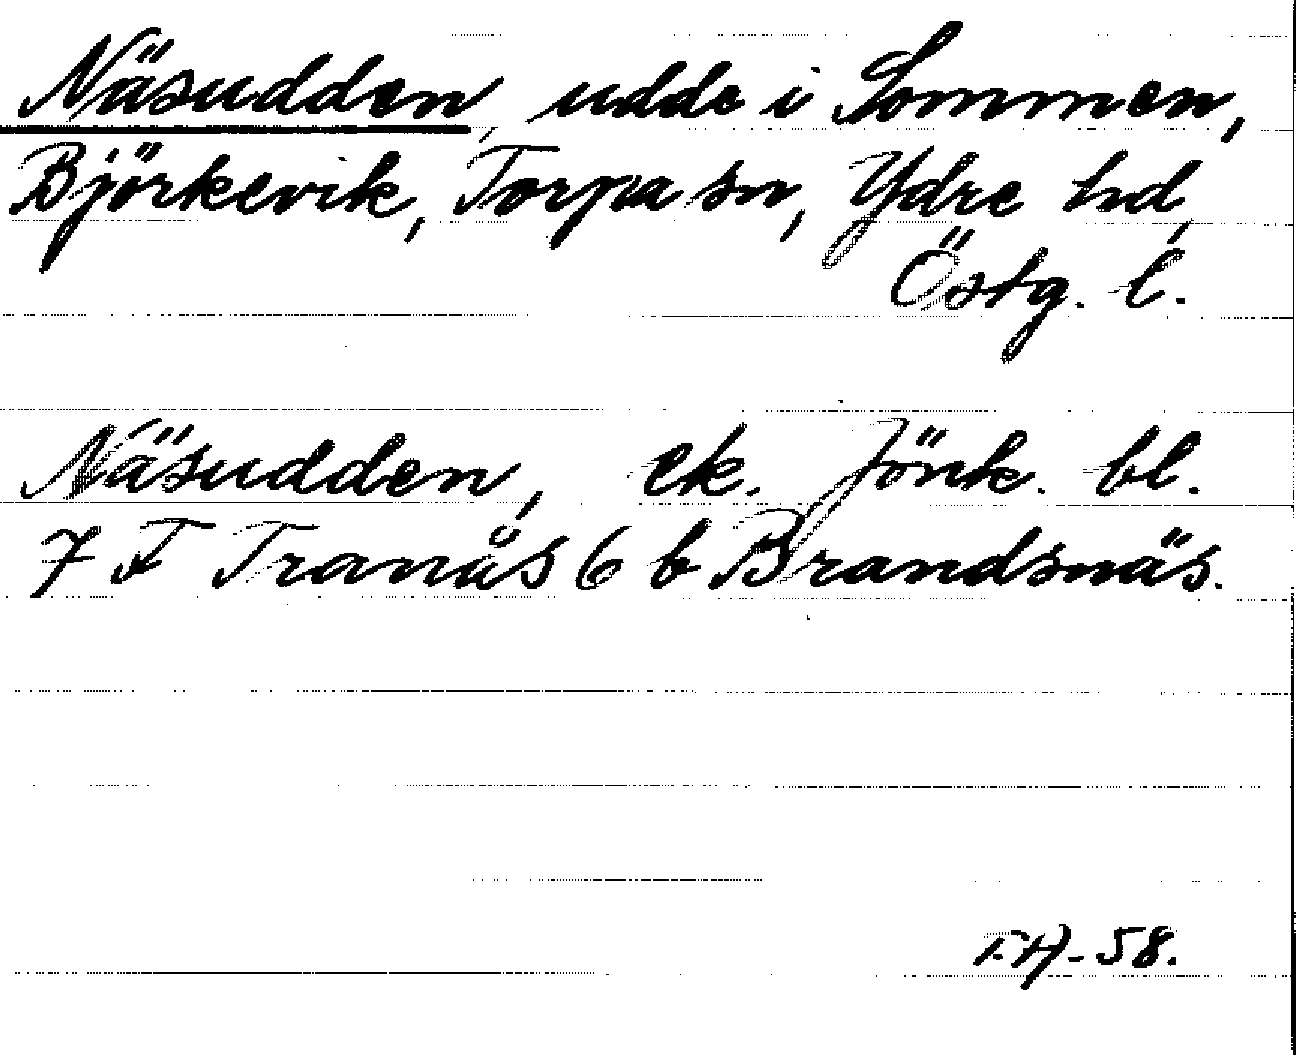 Näsudden, udde i Sommen,
Björkevik, Torpa sn, Ydre hd,
Östg. l.
Näsudden, ek. Jönk. bl.
7 F Tranås 6 b Brandsnäs.
F.H-58.